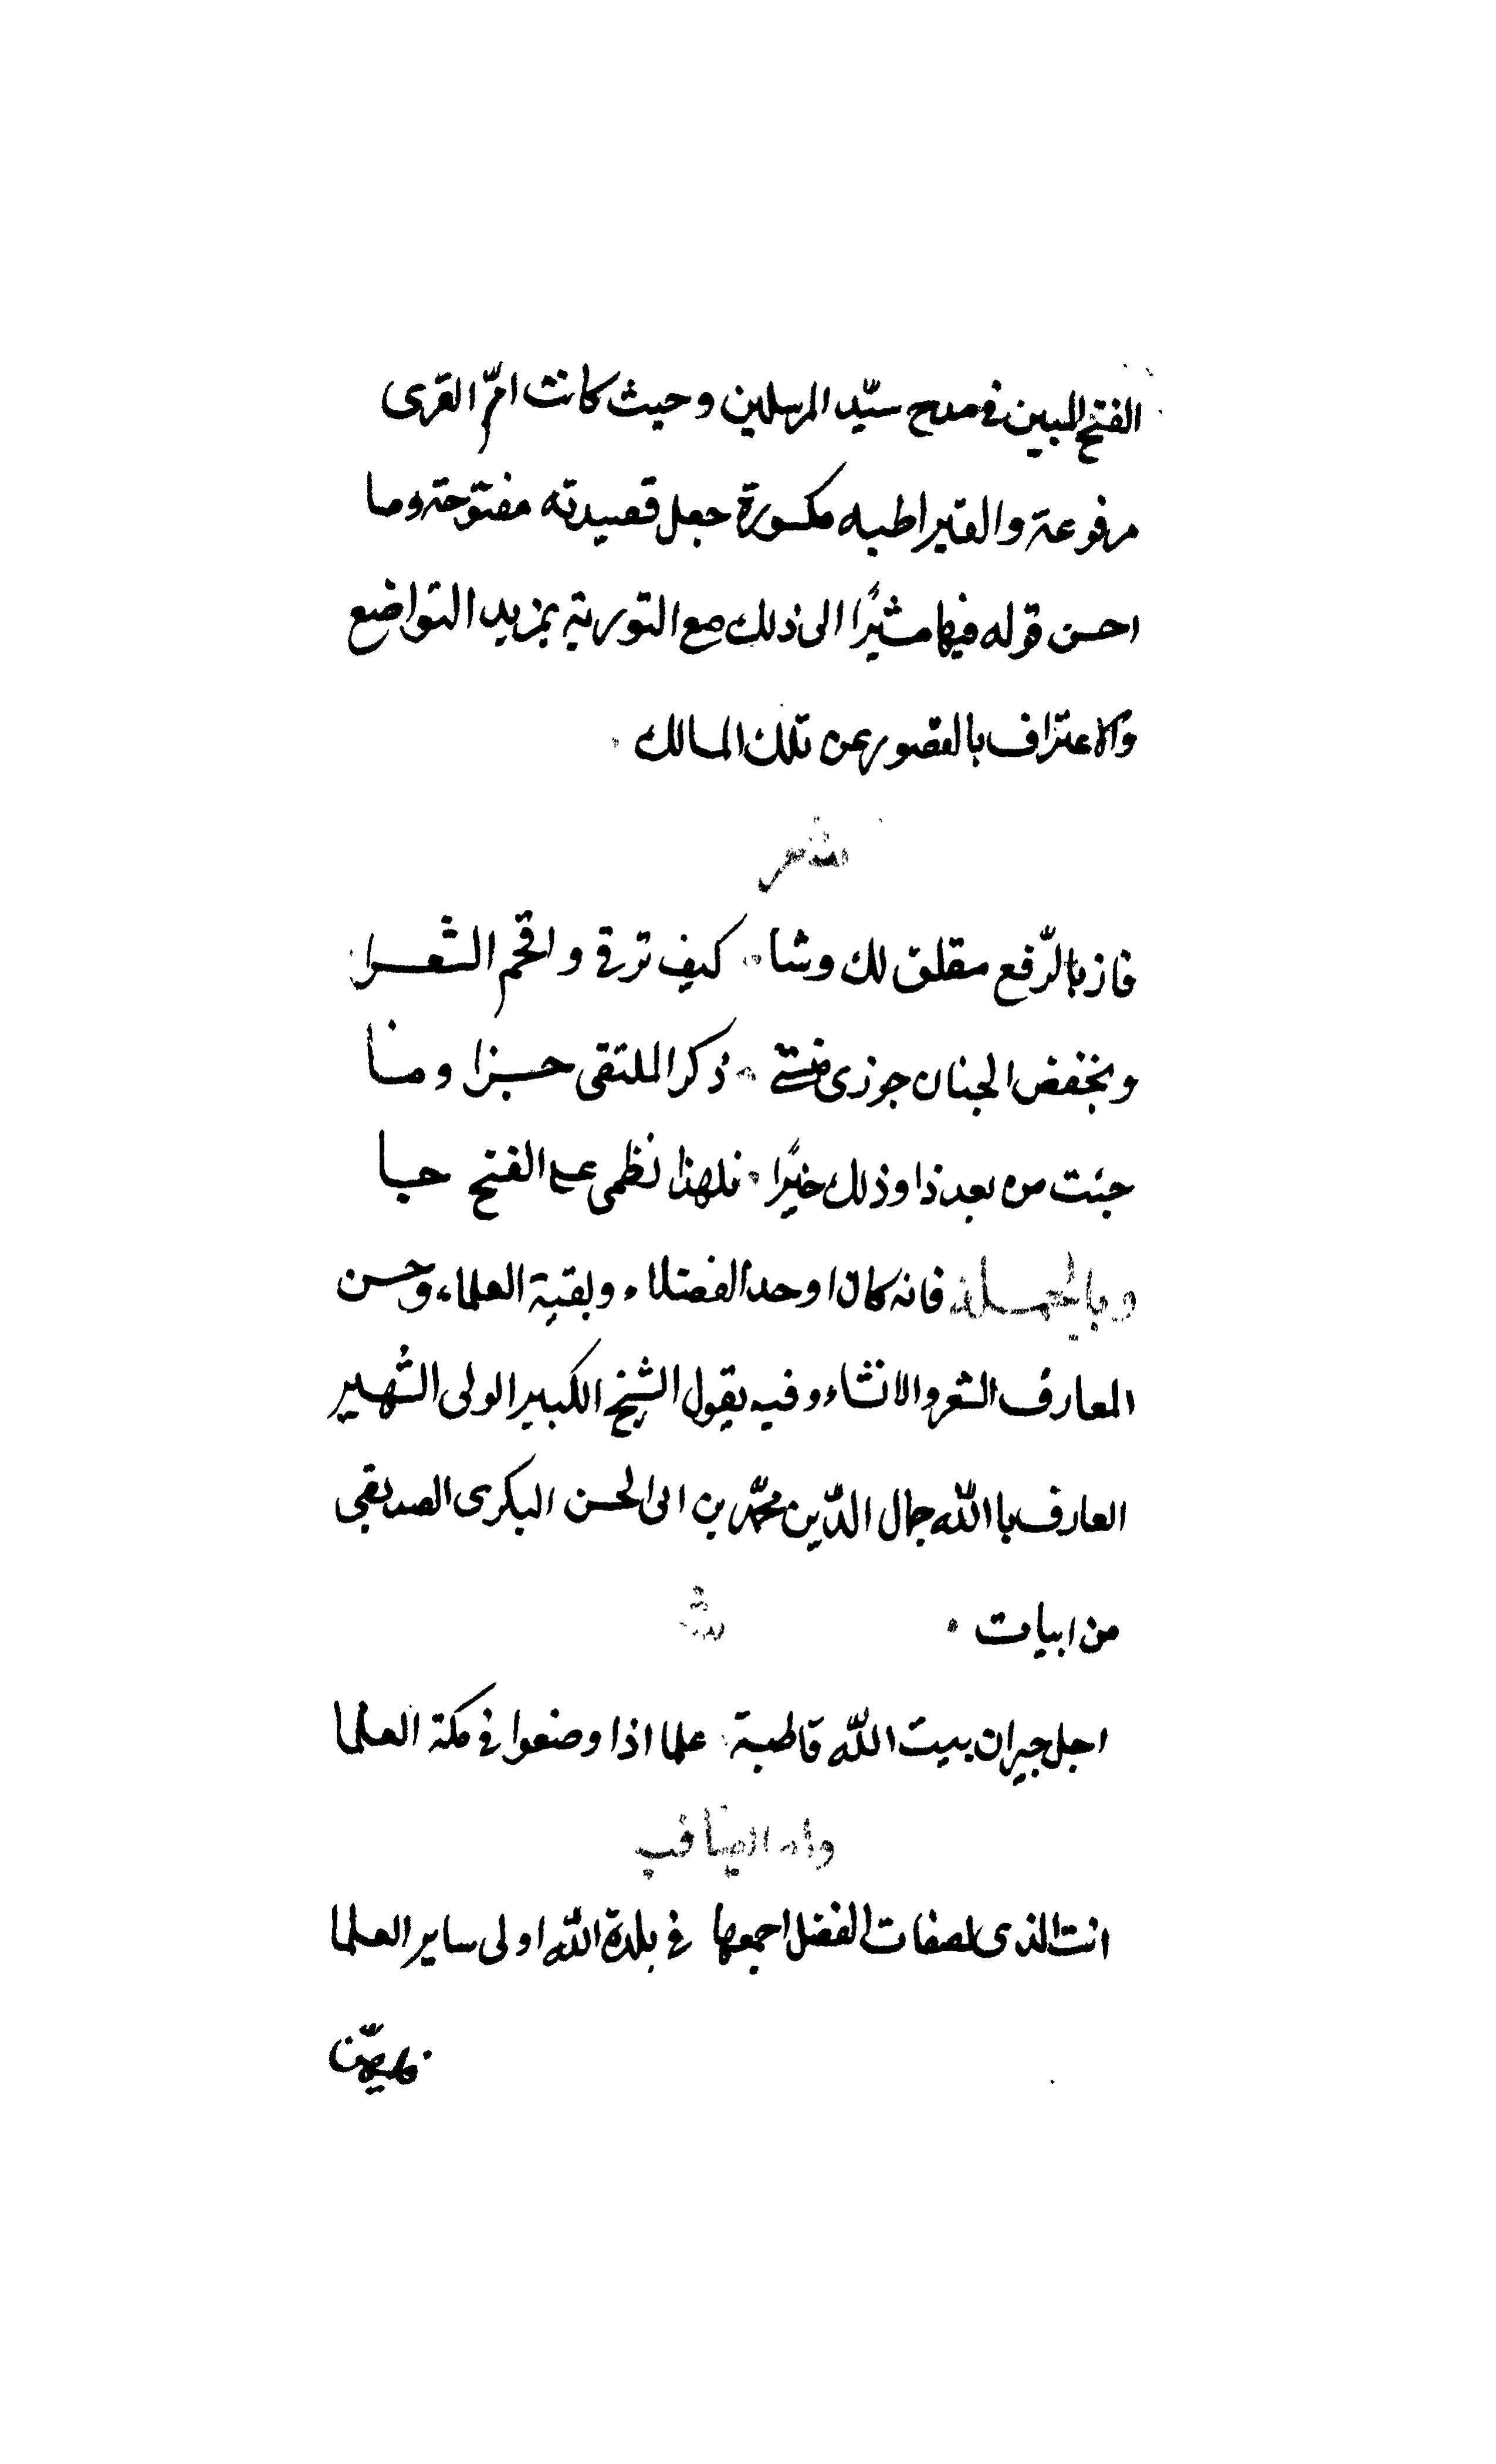 الفتح المبين في مدح سيّد المرسلين وحيث كانت امّ القرى
مرفوعة والقيراطيه مكسورة جعل قصيدته مفتوحة وما
احسن قوله فيها مشيرًا الى ذلك مع التورية بمزيد التواضع
والاعتراف بالقصور عن تلك المسالك
شعر
فاز بالرّفع مقلق لك وشا كيف ترقى واقحم الشعرا
وبخفض الجنان جوزى منشئ ذكر الملتقى جزا ومنا
جئت من بعد ذا وذلك خيرًا فلهذا نظمى على الفتح حبا
وبالجملة فانه كان اوحد الفضلاء وبقية العلماء وحسن
المعارف الشعر والانشاء وفيه يقول الشيخ الكبير الولى الشهير
العارف باالله جمال الدّين محمّد بن ابى الحسن البكرى الصديقى
من ابيات
اجل جيران بيت اللّه قاطبة علما اذا وضعوا في مكة العلما
وله ايضا فيه
انت الذى لصفات الفضل اجمعها في بلدة اللّه اولى ساير العلما